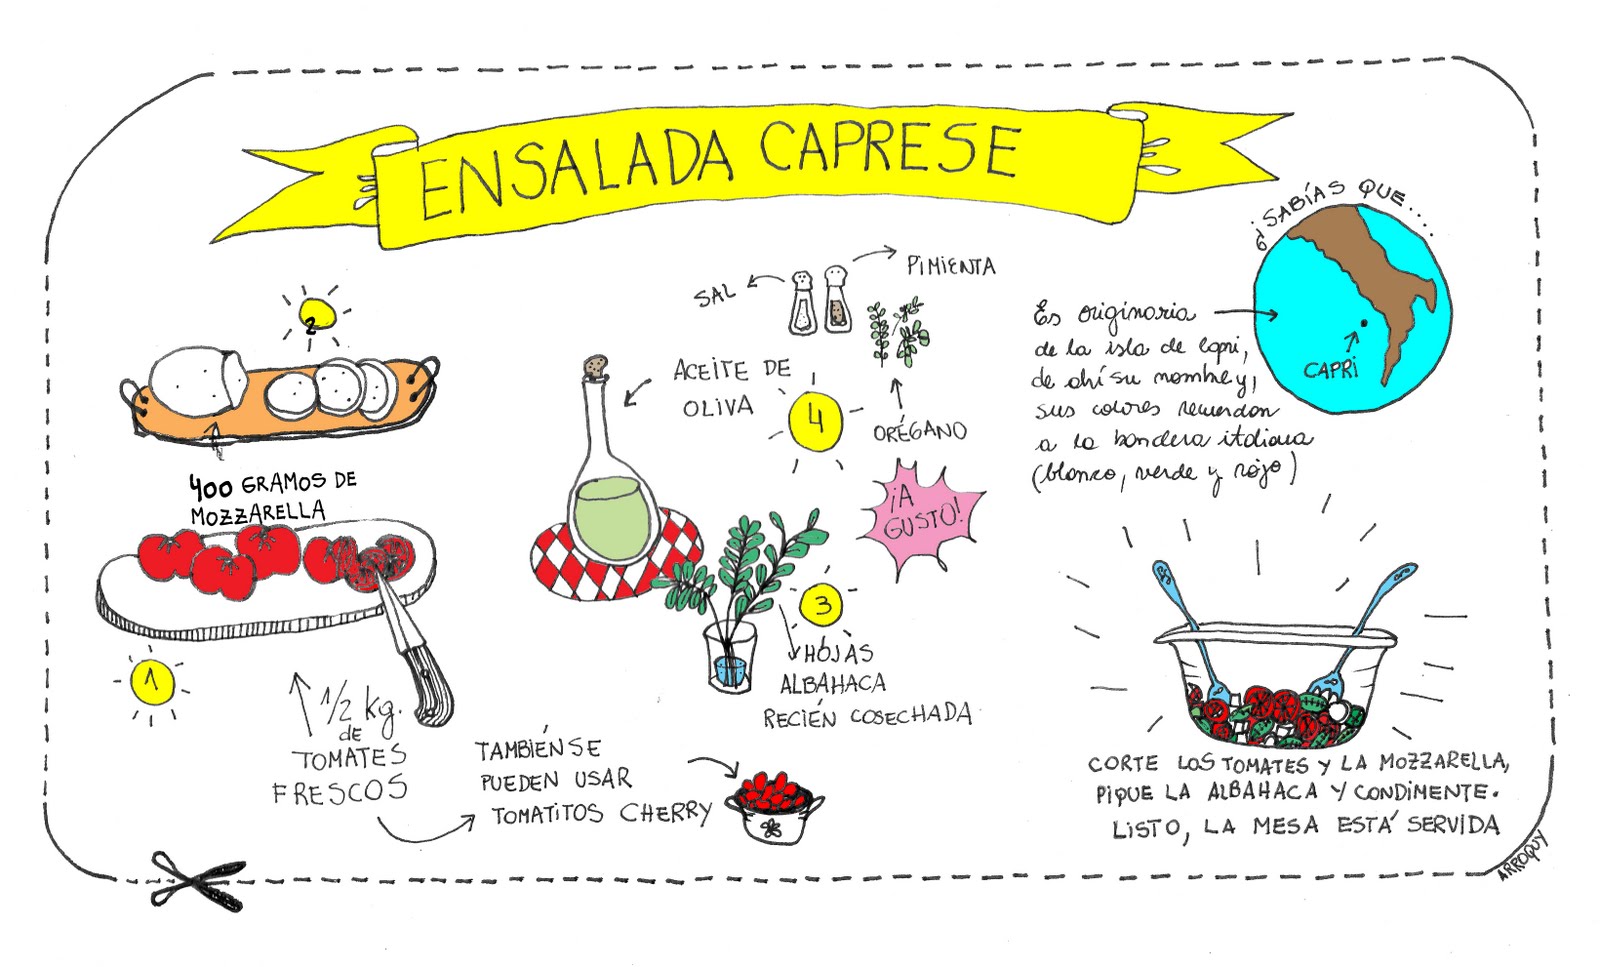 ENSALADA CAPRESE
¿SABÍAS QUE.....
Es originaria
de la isla de Capri,
de ahí su nombre y,
sus colores recuerdan
a la bandera italiana
(blanco, verde y rojo)
CAPRI
SAL
PIMIENTA
ACEITE DE
OLIVA
4
ORÉGANO
¡A
GUSTO!
2
400 GRAMOS DE
MOZZARELLA
1
1/2 kg.
DE
TOMATES
FRESCOS
3
HOJAS
ALBAHACA
RECIÉN COSECHADA
TAMBIÉN SE
PUEDEN USAR
TOMATITOS CHERRY
CORTE LOS TOMATES Y LA MOZZARELLA,
PIQUE LA ALBAHACA Y CONDIMENTE.
LISTO, LA MESA ESTÁ SERVIDA
ARROQUY